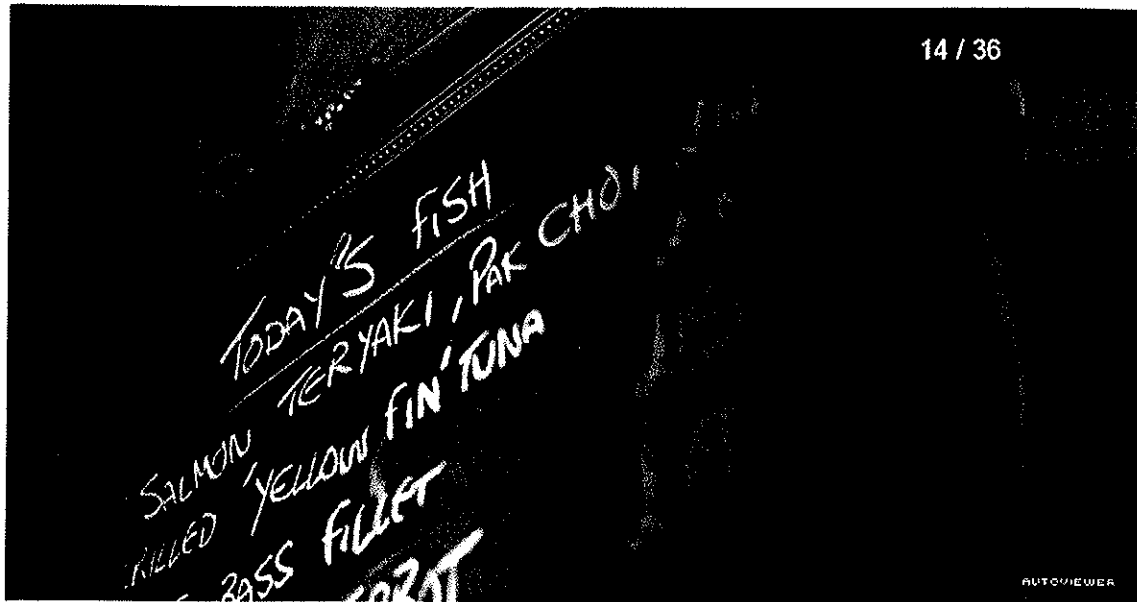 14 / 36
TODAY'S FISH
SALMON TERYAKI, PAK CHOI
'YELLOW FIN' TUNA
BASS FILLET
AUTOVIEWER